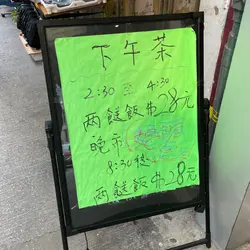 下午茶
2:30 至 4:30
两餸飯廿28元
晚市
8:30後
两餸飯廿28元